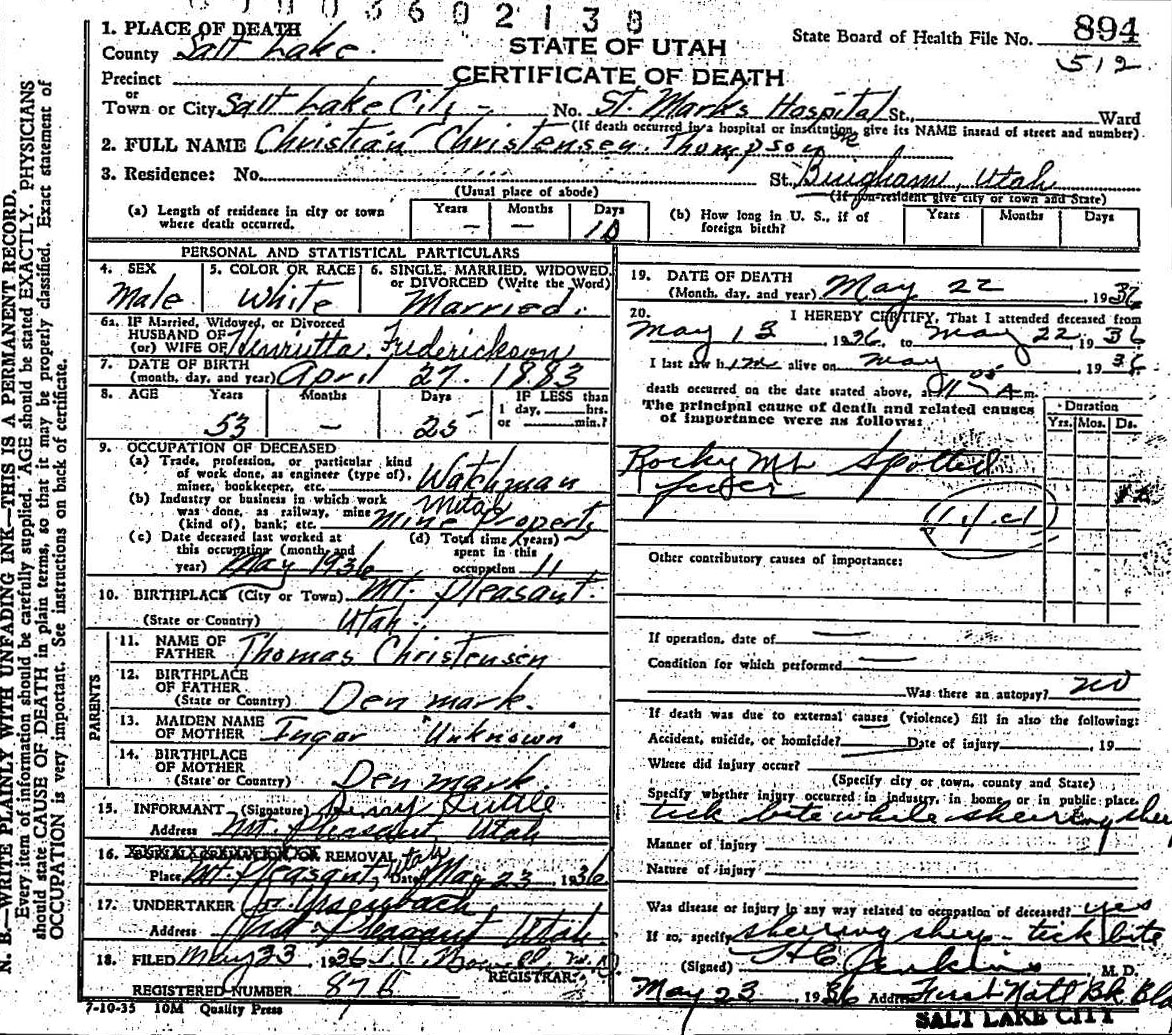 0003602138
1. PLACE OF DEATH
County Salt Lake.
STATE OF UTAH
CERTIFICATE OF DEATH
State Board of Health File No. 894
512
Precinct
or
Town or City Salt Lake City - No. St. Marks Hospital St., Ward
(If death occurred in a hospital or institution, give its NAME instead of street and number)
2. FULL NAME Christian Christensen Thompson
3. Residence: No. St. Bingham, Utah
(Usual place of abode) (If non-resident give city or town and State)
(a) Length of residence in city or town where death occurred. Years - Months - Days 10
(b) How long in U. S., if of foreign birth? Years Months Days
PERSONAL AND STATISTICAL PARTICULARS
4. SEX Male
5. COLOR OR RACE White
6. SINGLE, MARRIED, WIDOWED, or DIVORCED (Write the Word) Married.
6a. IF Married, Widowed, or Divorced
HUSBAND OF
(or) WIFE OF Henrietta Frederickson
7. DATE OF BIRTH
(month, day, and year) April 27. 1883
8. AGE Years 53 Months - Days 25 IF LESS than 1 day, hrs. or min.?
9. OCCUPATION OF DECEASED
(a) Trade, profession, or particular kind of work done, as engineer (type of), miner, bookkeeper, etc. Watchman
(b) Industry or business in which work was done, as railway, mine (kind of), bank; etc. Mine Property
(c) Date deceased last worked at this occupation (month and year) May 1936
(d) Total time (years) spent in this occupation 11
10. BIRTHPLACE (City or Town) Mt. Pleasant.
(State or Country) Utah.
PARENTS
11. NAME OF FATHER Thomas Christensen
12. BIRTHPLACE OF FATHER
(State or Country) Denmark.
13. MAIDEN NAME OF MOTHER Ingar "Unknown"
14. BIRTHPLACE OF MOTHER
(State or Country) Denmark
15. INFORMANT (Signature)
Address Mt. Pleasant Utah
16. BURIAL CREMATION OR REMOVAL
Place Mt. Pleasant, Utah Date May 23, 1936
17. UNDERTAKER
Address Mt. Pleasant Utah.
18. FILED May 23, 1936
REGISTRAR.
REGISTERED NUMBER 876
7-10-35 10M Quality Press
19. DATE OF DEATH
(Month, day, and year) May 22, 1936
20. I HEREBY CERTIFY, That I attended deceased from
May 13, 1936, to May 22, 1936
I last saw him alive on May, 1936
death occurred on the date stated above, at 11 05 A m.
The principal cause of death and related causes of importance were as follows:
Duration
Yrs. Mos. Ds.
Rocky Mt. Spotted
fever
Other contributory causes of importance:
If operation, date of
Condition for which performed
Was there an autopsy? no
If death was due to external causes (violence) fill in also the following:
Accident, suicide, or homicide? Date of injury , 19
Where did injury occur?
(Specify city or town, county and State)
Specify whether injury occurred in industry, in home, or in public place.
tick bite while shearing sheep
Manner of injury
Nature of injury
Was disease or injury in any way related to occupation of deceased? yes
If so, specify shearing sheep - tick bite
(Signed) Jenkins M. D.
May 23, 1936 Address First Natl Bk Bld
SALT LAKE CITY
N. B.—WRITE PLAINLY WITH UNFADING INK—THIS IS A PERMANENT RECORD.
Every item of information should be carefully supplied. AGE should be stated EXACTLY. PHYSICIANS
should state CAUSE OF DEATH in plain terms, so that it may be properly classified. Exact statement of
OCCUPATION is very important. See instructions on back of certificate.